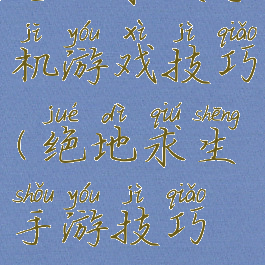 jī yóu xì jì qiǎo
机游戏技巧
jué dì qiú shēng
(绝地求生
shǒu yóu jì qiǎo
手游技巧